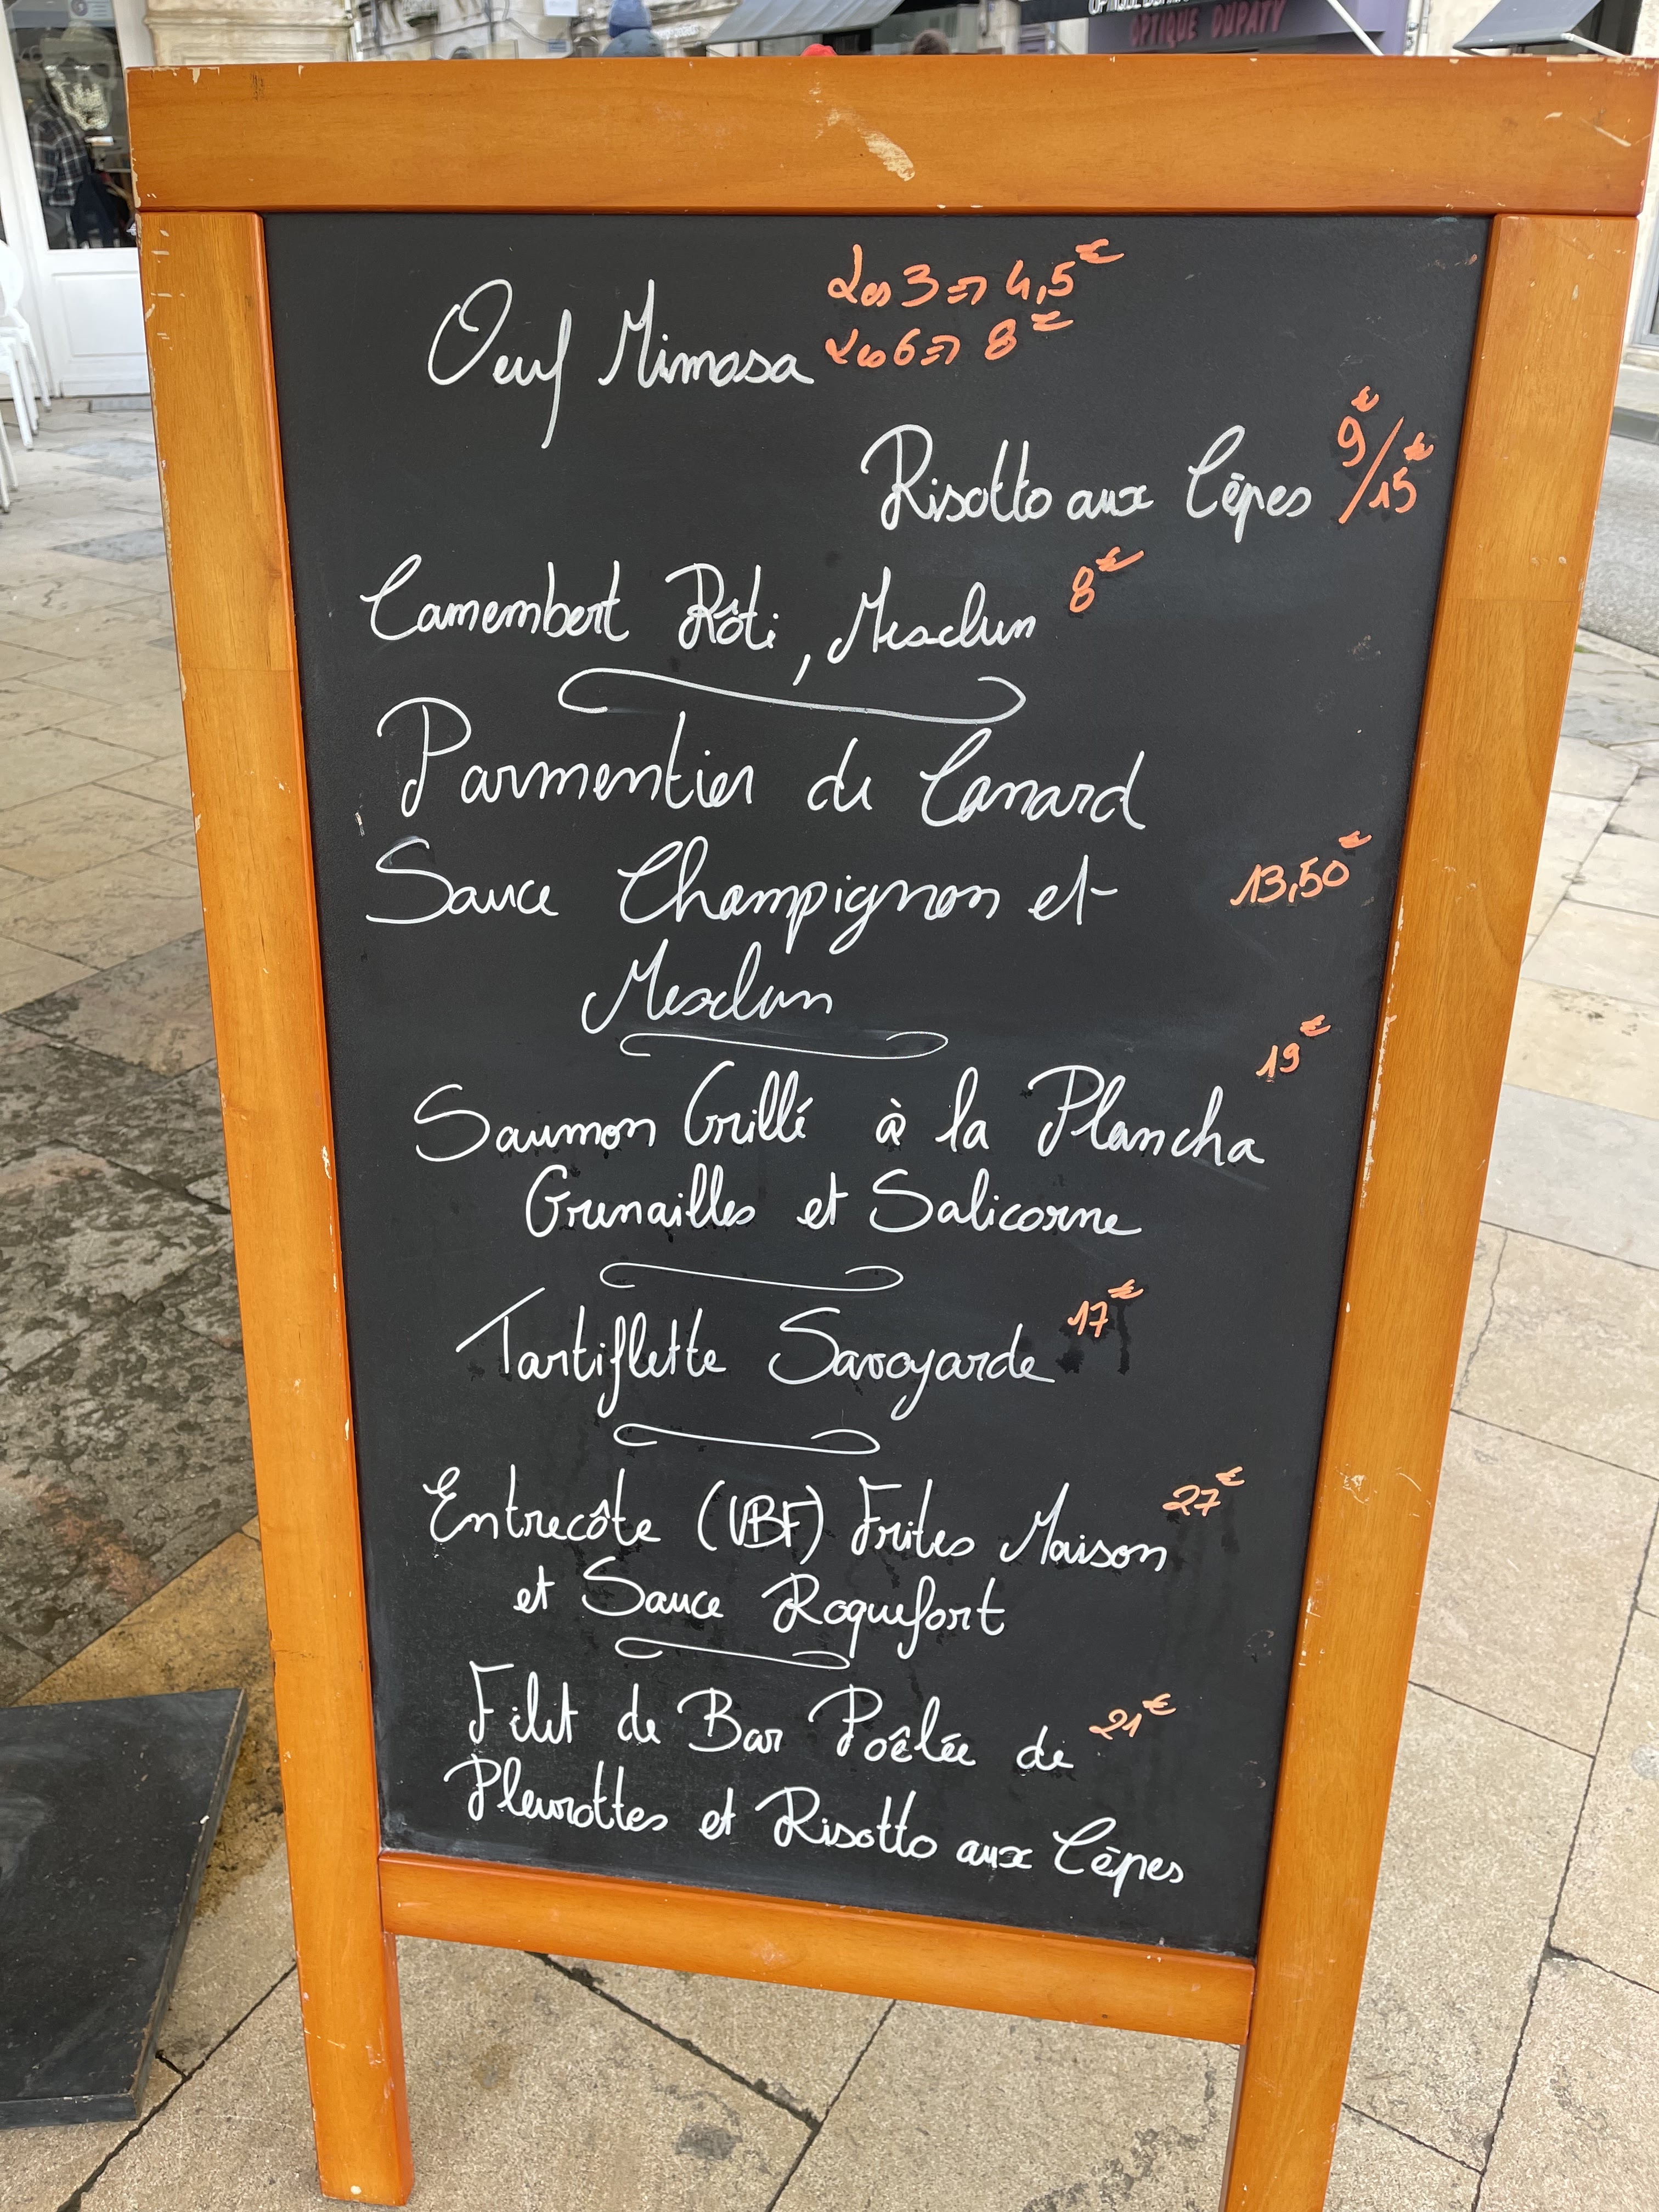 OPTIQUE DUPATY
Oeuf Mimosa Les 3 => 4,5€
Les 6 => 8€
Risotto aux Cêpes 9€/15€
Camembert Rôti, Mesclun 8€
Parmentier de Canard
Sauce Champignon et 13,50€
Mesclun
Saumon Grillé à la Plancha 19€
Grenailles et Salicorne
Tartiflette Savoyarde 17€
Entrecôte (VBF) Frites Maison 27€
et Sauce Roquefort
Filet de Bar Poêlée de 21€
Pleurottes et Risotto aux Cêpes